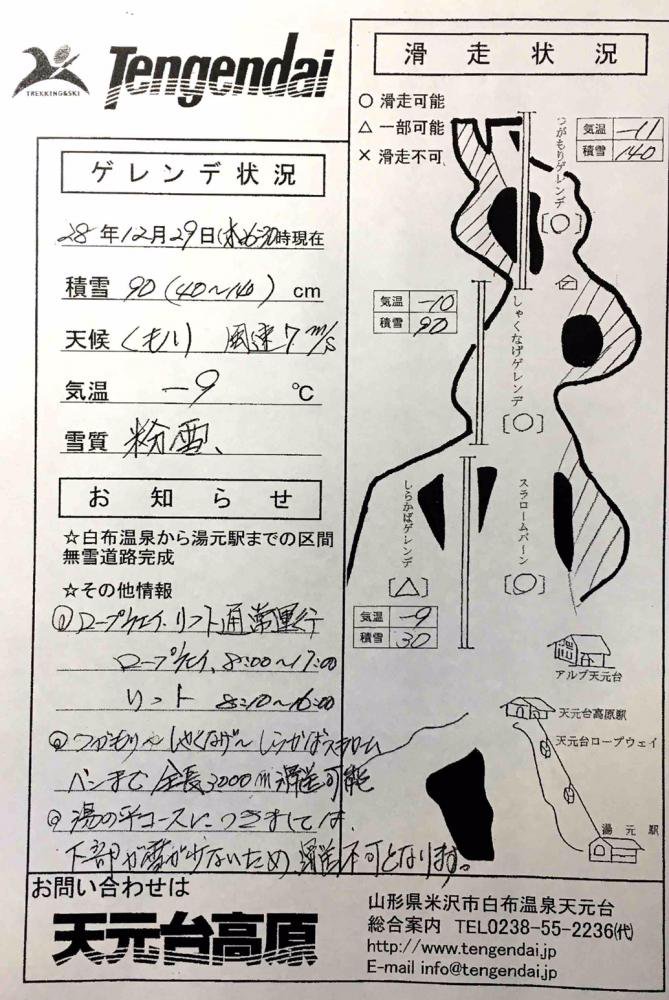 TREKKING&SKI
Tengendai
ゲレンデ状況
28年12月29日(木)6:30時現在
積雪 90(40～140)cm
天候 くもり 風速7m/s
気温 -9 ℃
雪質 粉雪、
お知らせ
☆白布温泉から湯元駅までの区間
無雪道路完成
☆その他情報
◎ロープウェイ・リフト通常運行
ロープウェイ、8:00～17:00
リフト 8:10～16:00
◎つがもり～しゃくなげ～しらかばスラローム
バーンまで全長3000m滑走可能
◎湯の平コースにつきましては、
下部が雪が少ないため、滑走不可となります。
滑走状況
○ 滑走可能
△ 一部可能
× 滑走不可
つがもりゲレンデ
[○]
気温 -11
積雪 140
気温 -10
積雪 90
しゃくなげゲレンデ
[○]
しらかばゲレンデ
[△]
スラロームバーン
[○]
気温 -9
積雪 30
アルブ天元台
天元台高原駅
天元台ロープウェイ
湯元駅
お問い合わせは
天元台高原
山形県米沢市白布温泉天元台
総合案内 TEL0238-55-2236(代)
http://www.tengendai.jp
E-mail info@tengendai.jp